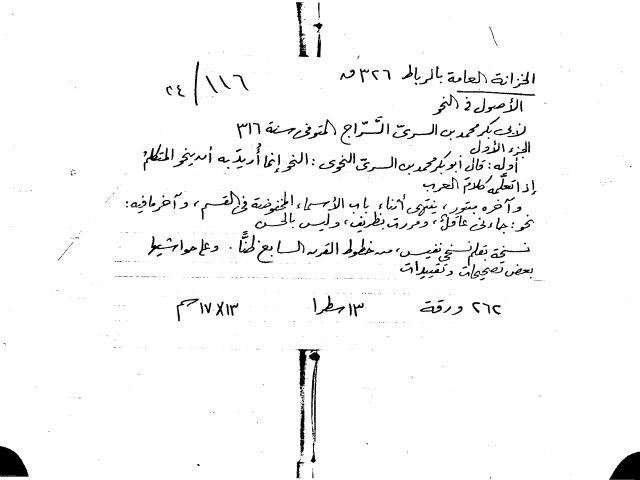 الخزانة العامة بالرباط ٣٢٦ ق
١١٦/٢٤
الأصول في النحو
لأبي بكر محمد بن السري السّرّاج المتوفى سنة ٣١٦
الجزء الأول
أوله : قال أبو بكر محمد بن السري النحوي : النحو إنما أُريدَ به أن ينحو المتكلم
إذا تعلّمه كلامَ العرب
وآخره مبتور ، ينتهي أثناء باب الأسماء المخفوضة في القسم ، وآخر ما فيه :
نحو : جاءني عاقلٌ ، ومررت بظريف ، وليس بالحسن
نسخة بقلم نسخي نفيس ، من خطوط القرن السابع ظنًّا . وعلى حواشيها
بعض تصحيحات وتقييدات
٢٦٢ ورقة ١٣ سطرا ١٣×١٧ سم